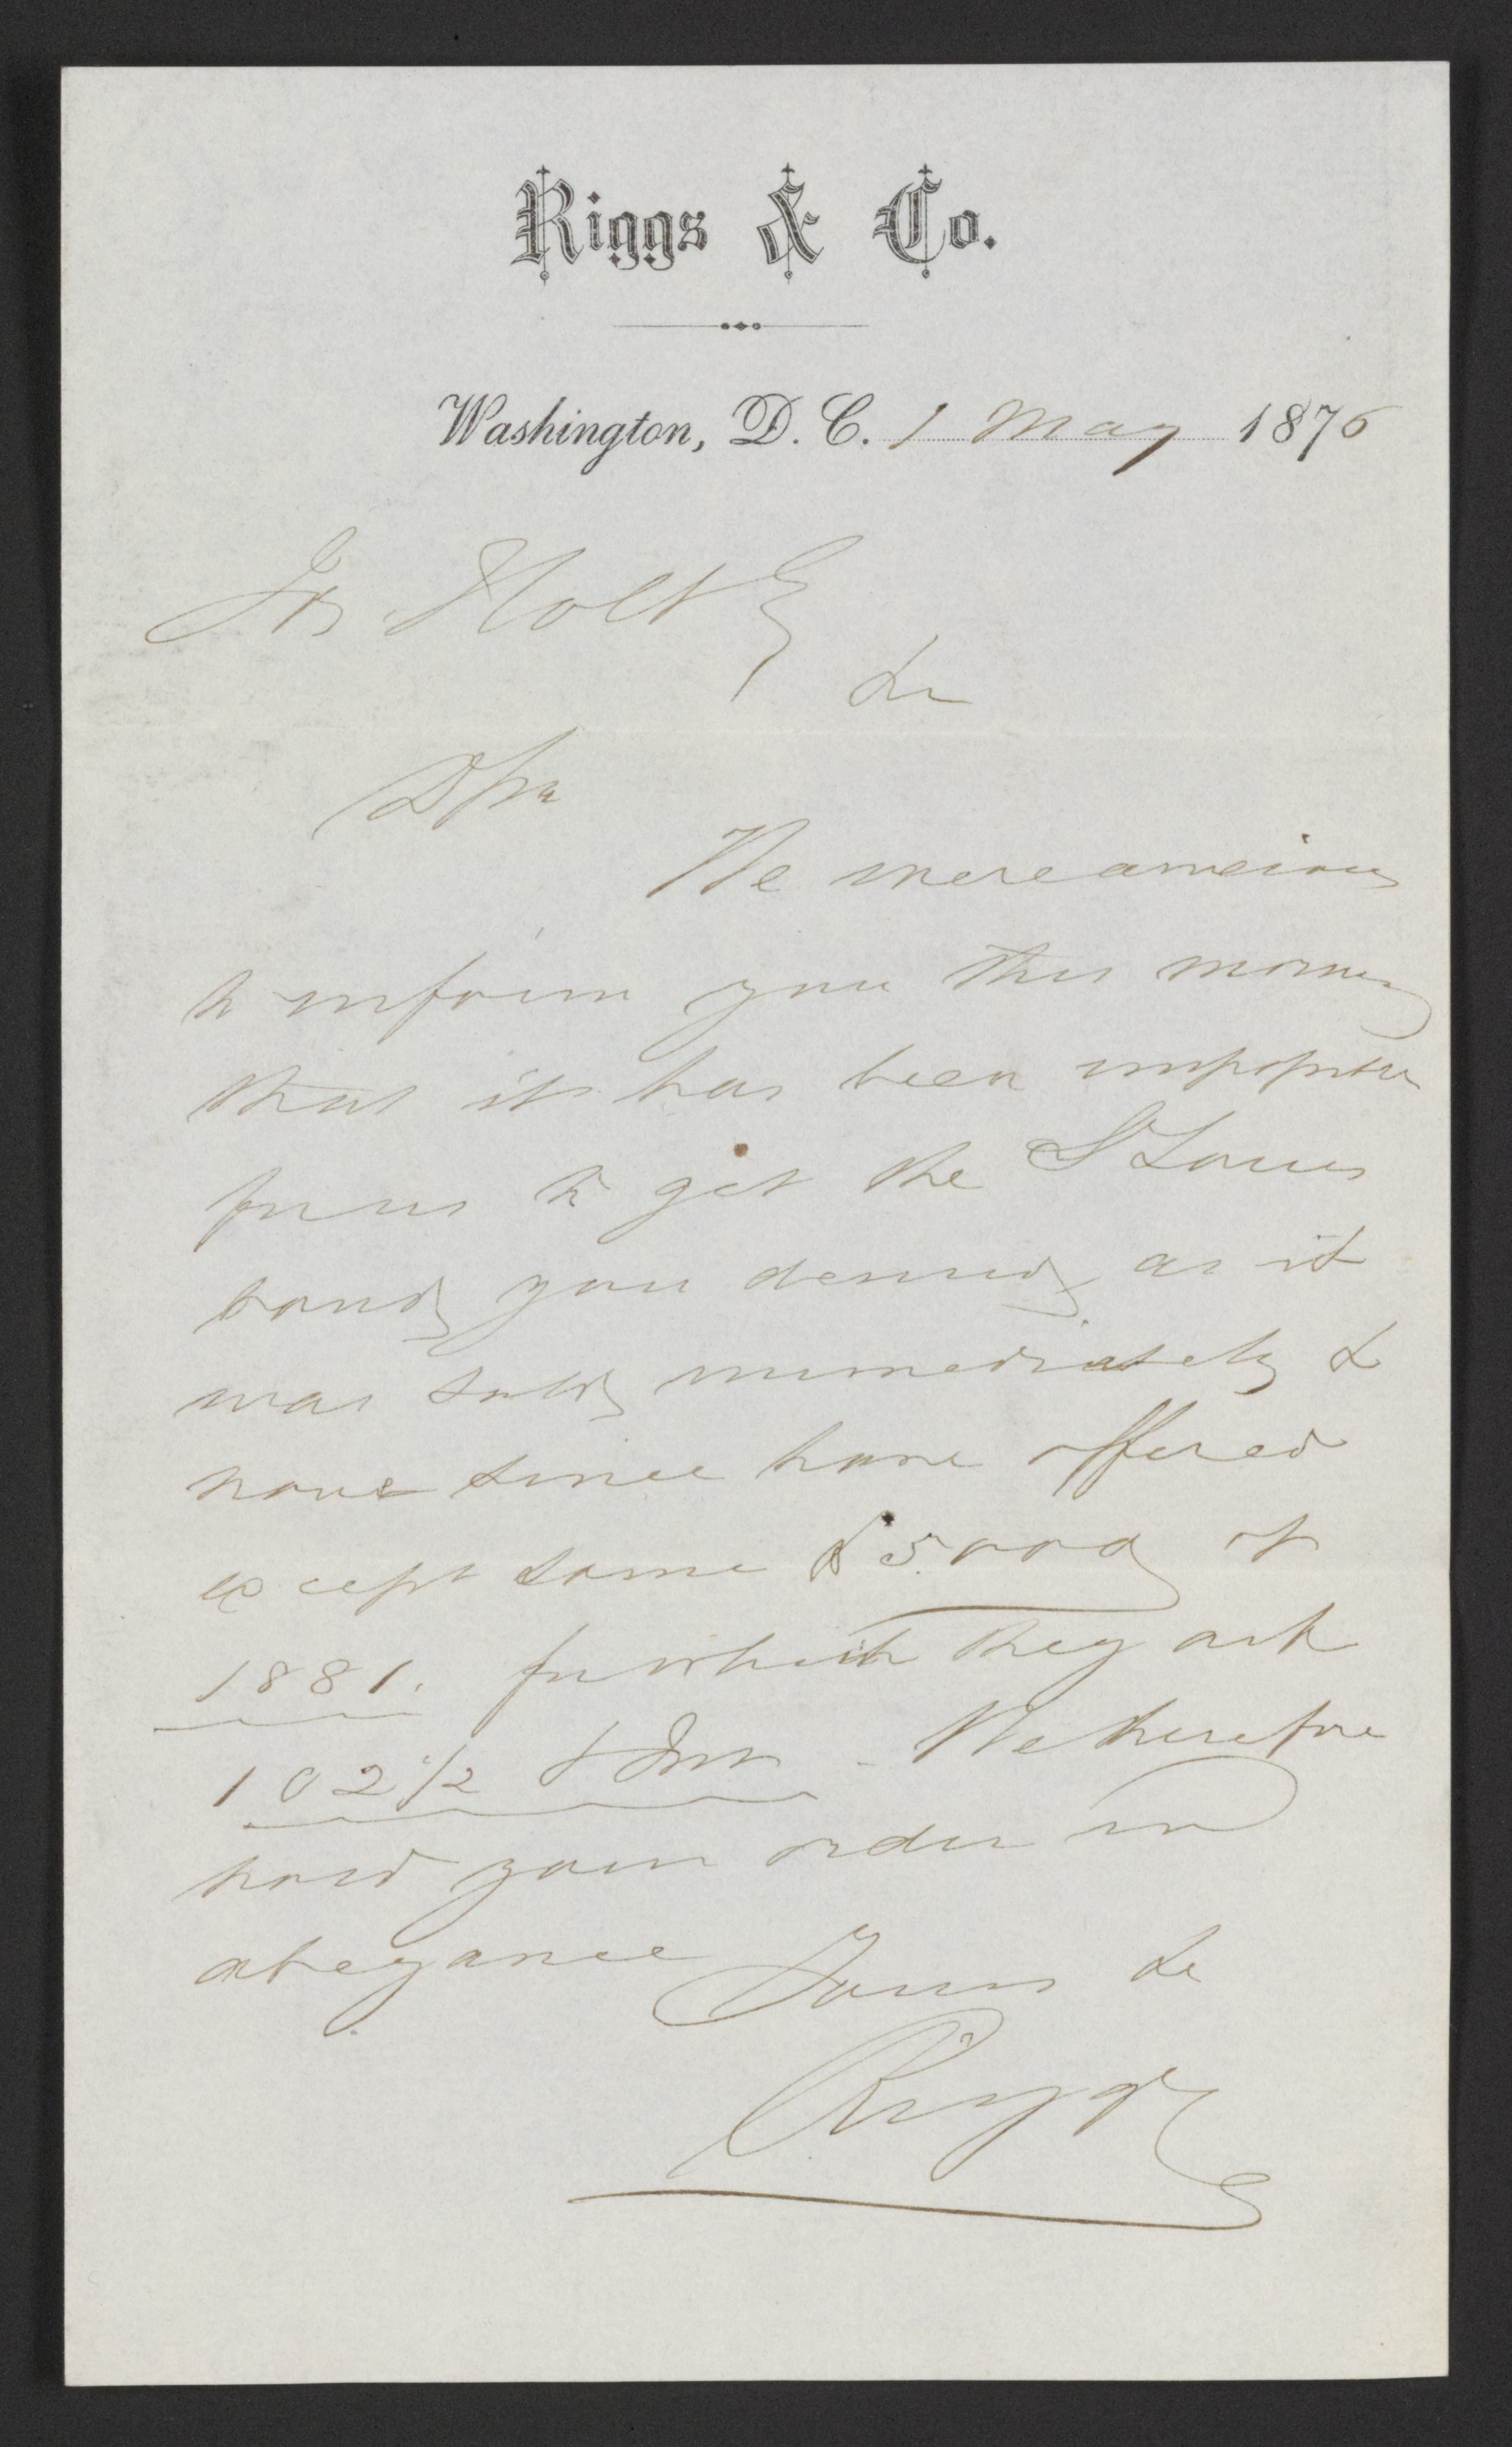 Riggs & Co.
Washington, D. C. 1 May 1876
Jos Holt Esq
Dr
D Sir
We were anxious
to inform you this morning
that it has been impossible
for us to get the St Louis
bonds you desired, as it
was sold immediately &
none since have offered
except some $5000 of
1881. for which they ask
102 1/2 & Int - We therefore
hold your order in
abeyance Yours &c
Riggs & Co